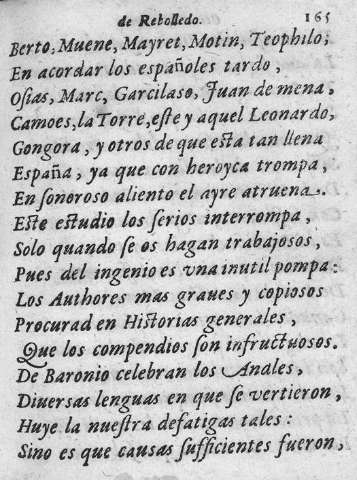 de Rebolledo. 165
Berto, Muene, Mayret, Motin, Teophilo;
En acordar los españoles tardo,
Osias, Marc, Garcilaso, Juan de mena,
Camoes, la Torre, este y aquel Leonardo,
Gongora, y otros de que esta tan llena
España, ya que con heroyca trompa,
En sonoroso aliento el ayre atruena.
Este estudio los serios interrompa,
Solo quando se os hagan trabajosos,
Pues del ingenio es vna inutil pompa:
Los Authores mas graues y copiosos
Procurad en Historias generales,
Que los compendios son infructuosos.
De Baronio celebran los Anales,
Diuersas lenguas en que se vertieron,
Huye la nuestra defatigas tales:
Sino es que causas sufficientes fueron,